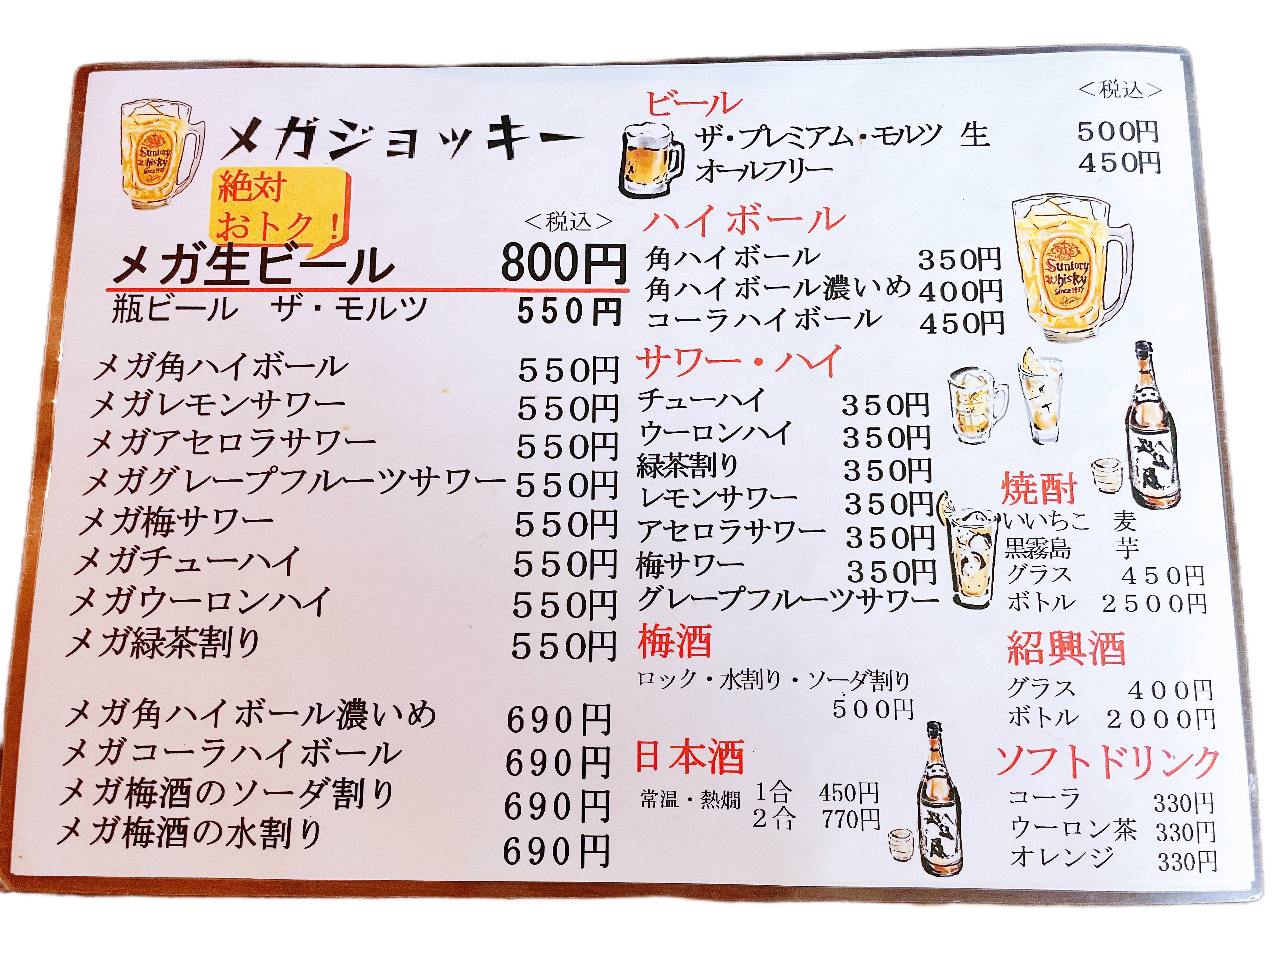 メガジョッキー
絶対
おトク！
＜税込＞
メガ生ビール 800円
瓶ビール ザ・モルツ 550円
メガ角ハイボール 550円
メガレモンサワー 550円
メガアセロラサワー 550円
メガグレープフルーツサワー 550円
メガ梅サワー 550円
メガチューハイ 550円
メガウーロンハイ 550円
メガ緑茶割り 550円
メガ角ハイボール濃いめ 690円
メガコーラハイボール 690円
メガ梅酒のソーダ割り 690円
メガ梅酒の水割り 690円
＜税込＞
ビール
ザ・プレミアム・モルツ 生 500円
オールフリー 450円
ハイボール
角ハイボール 350円
角ハイボール濃いめ 400円
コーラハイボール 450円
Suntory
Whisky
Since 1937
サワー・ハイ
チューハイ 350円
ウーロンハイ 350円
緑茶割り 350円
レモンサワー 350円
アセロラサワー 350円
梅サワー 350円
グレープフルーツサワー
梅酒
ロック・水割り・ソーダ割り
500円
日本酒
常温・熱燗 1合 450円
2合 770円
焼酎
いいちこ 麦
黒霧島 芋
グラス 450円
ボトル 2500円
紹興酒
グラス 400円
ボトル 2000円
ソフトドリンク
コーラ 330円
ウーロン茶 330円
オレンジ 330円